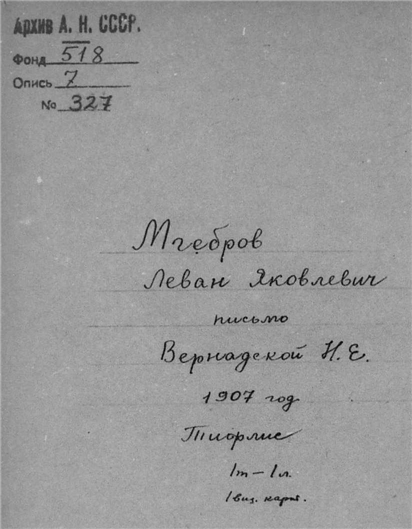 Архив А. Н. СССР.
Фонд 518
Опись 7
№ 327
Мгебров
Леван Яковлевич
письмо
Вернадской Н. Е.
1907 год
Тифлис
1т – 1л.
1 виз. карт.